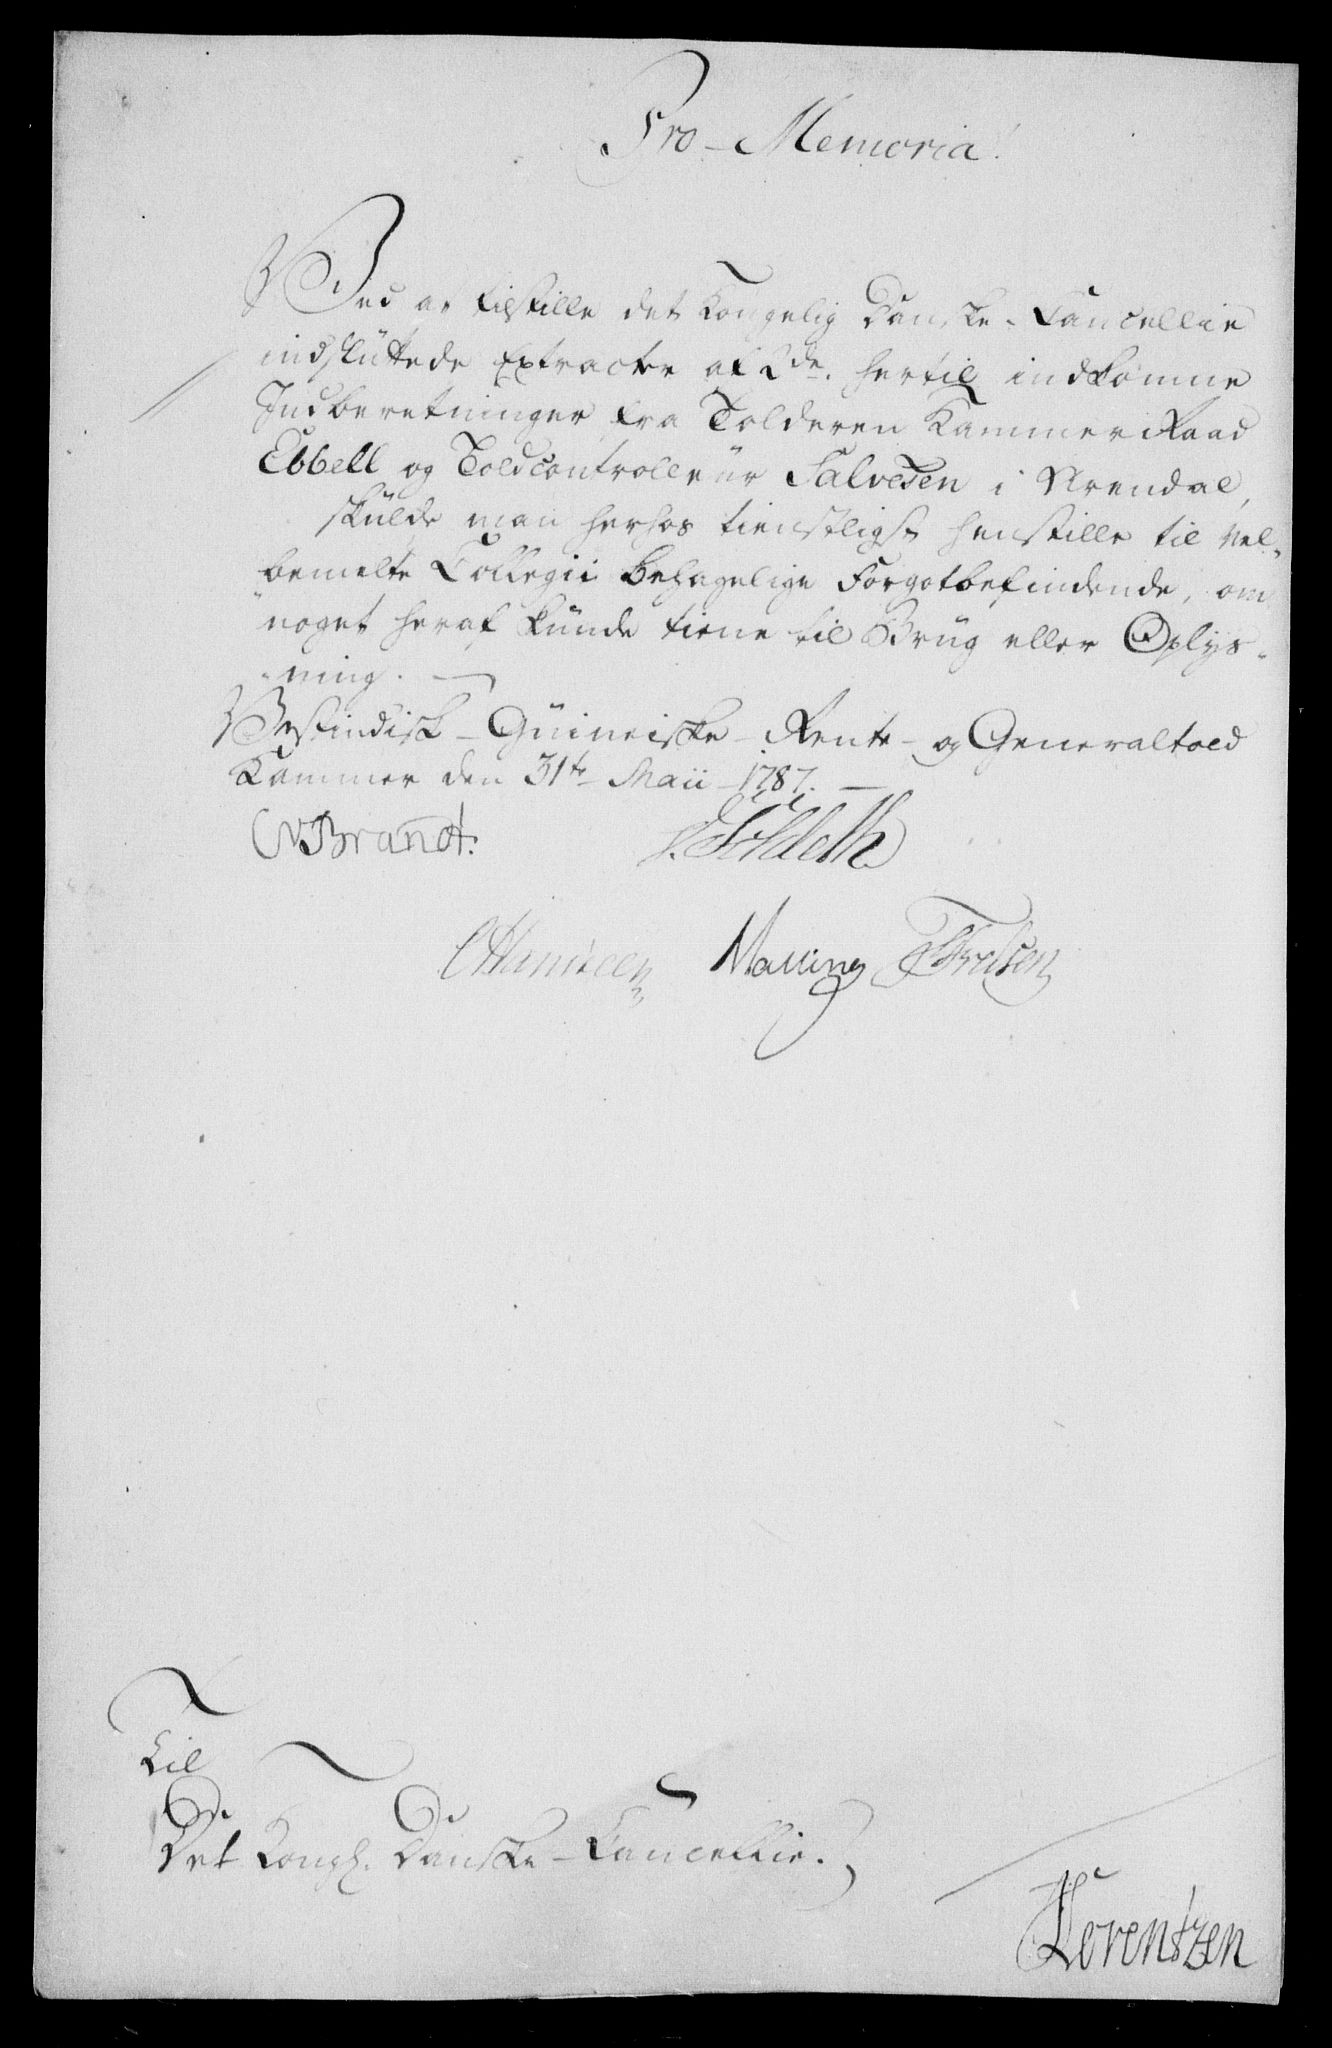 Pro-Memoria!
Ved at tilstille det Kongelig Danske-Cancellie
indsluttede Extracter af 2de hertil indkomne
Indberetninger fra Tolderen KammerRaad
Ebbell og Toldcontrolleur Salvesen i Arendal,
skulde man herhos tienstligst henstille til vel-
bemelte Collegii behagelige Forgotbefindende, om
noget heraf kunde tiene til Brug eller Oplys-
-ning.
Vestindisk-Guineiske-Rente-og Generaltold
Kammer den 31te Maii 1787.
CVBrandt.
Malling
Til
Det Kongl. Danske-Cancellie.
Lorentzen